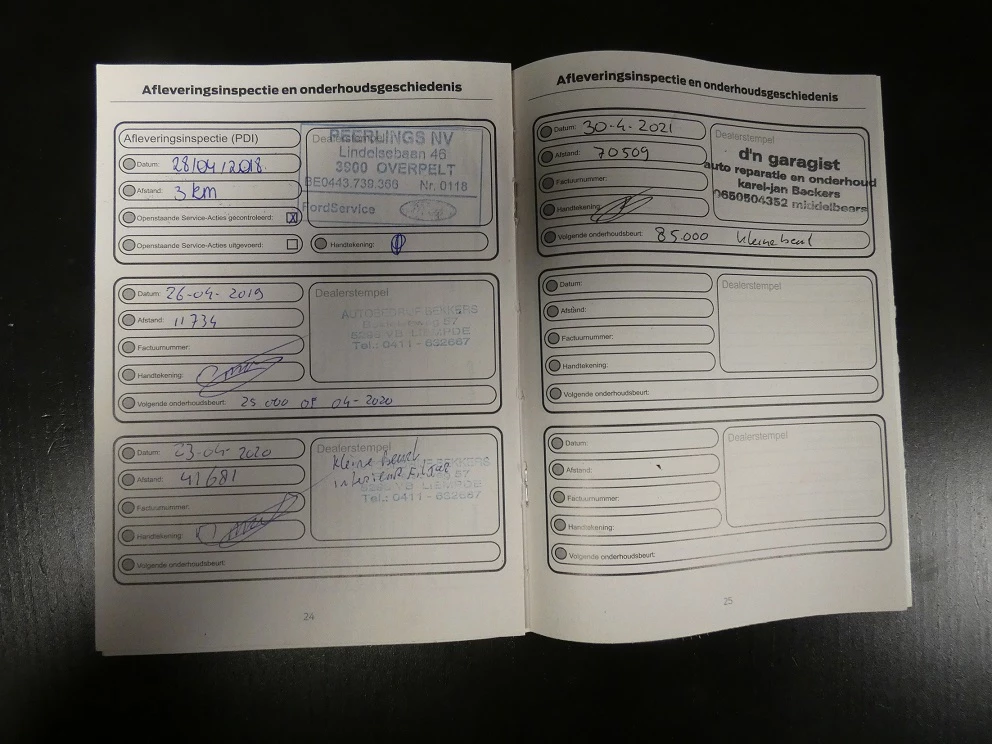 Afleveringsinspectie en onderhoudsgeschiedenis
Afleveringsinspectie (PDI)
Datum: 28/04/2018
Afstand: 3 km
Openstaande Service-Acties gecontroleerd: X
Openstaande Service-Acties uitgevoerd:
Dealerstempel
PEERLINGS NV
Lindelsebaan 46
3900 OVERPELT
BE0443.739.366 Nr. 0118
FordService
Handtekening:
Datum: 26-04-2019
Afstand: 11734
Factuurnummer:
Handtekening:
Dealerstempel
AUTOBEDRIJF BEKKERS
57
5298 VB LIEMPDE
Tel.: 0411 - 632667
Volgende onderhoudsbeurt: 25 000 of 04-2020
Datum: 23-04-2020
Afstand: 41681
Factuurnummer:
Handtekening:
Dealerstempel
kleine beurt
BEKKERS
57
LIEMPDE
Tel.: 0411 - 632667
Volgende onderhoudsbeurt:
24
Afleveringsinspectie en onderhoudsgeschiedenis
Datum: 30-4-2021
Afstand: 70509
Factuurnummer:
Handtekening:
Dealerstempel
d'n garagist
auto reparatie en onderhoud
karel-jan Backers
0650504352 middelbeers
Volgende onderhoudsbeurt: 85.000 kleine beurt
Datum:
Afstand:
Factuurnummer:
Handtekening:
Dealerstempel
Volgende onderhoudsbeurt:
Datum:
Afstand:
Factuurnummer:
Handtekening:
Dealerstempel
Volgende onderhoudsbeurt:
25